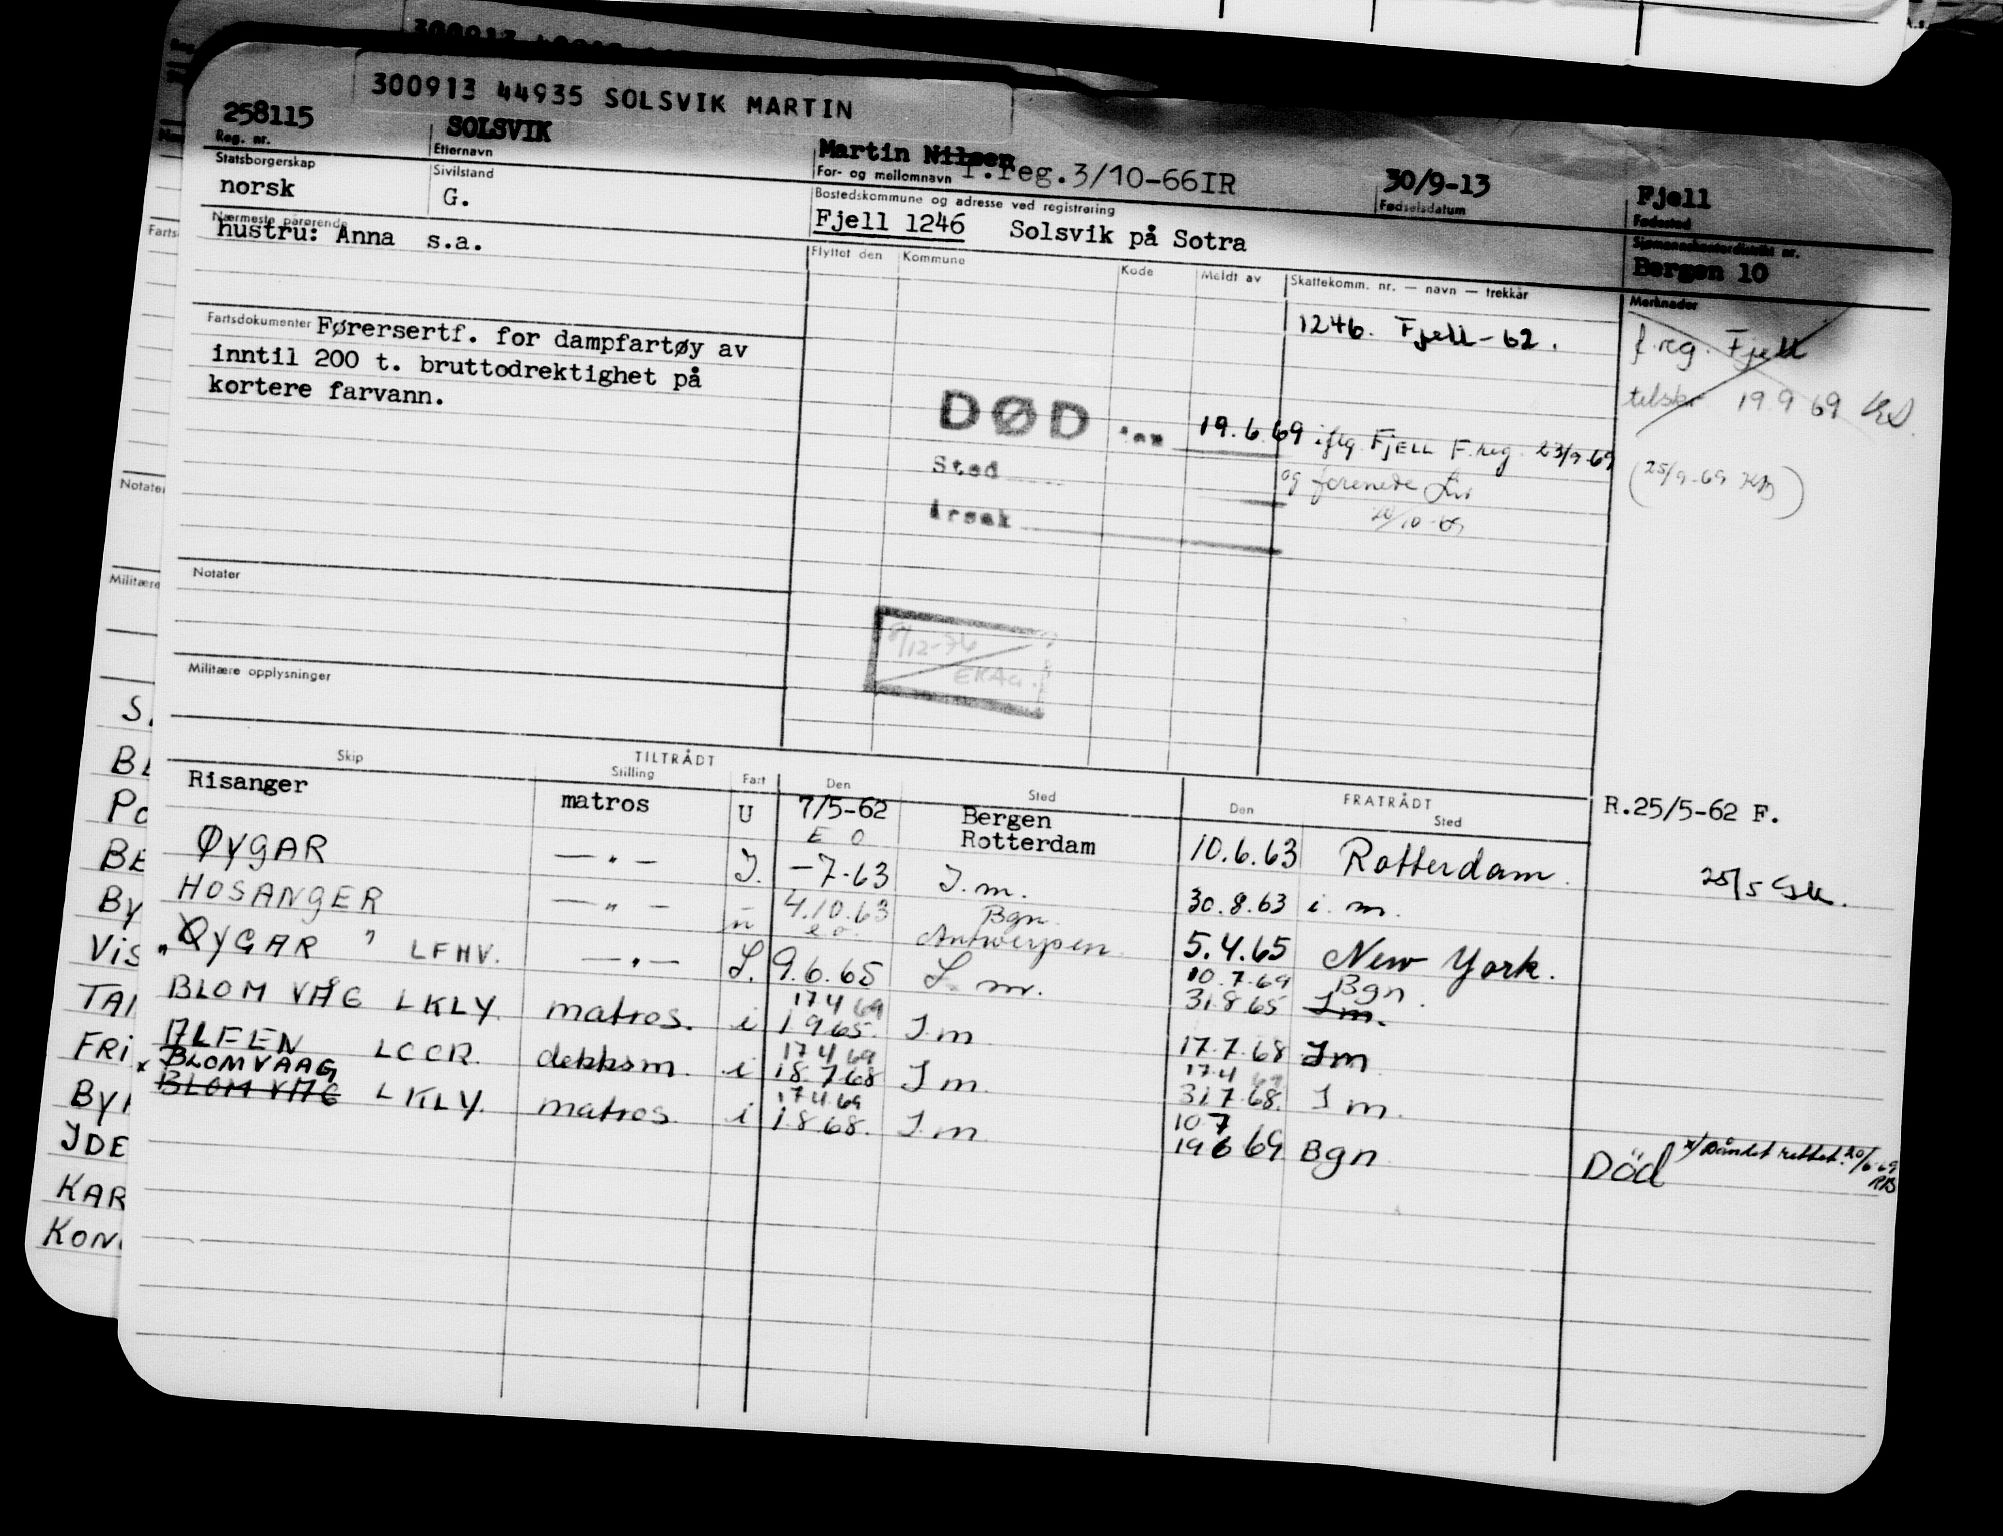 300913 44935 SOLSVIK MARTIN
258115 SOLSVIK Martin Nilsen f.reg.3/10-66IR 30/9-13 Fjell
Reg. nr. Etternavn For- og mellomnavn Fødselsdatum Fødested
Statsborgerskap Sivilstand Bostedskommune og adresse ved registrering
norsk G. Fjell 1246 Solsvik på Sotra Bergen 10
Nærmeste pårørende Flyttet den Kommune Kode Meldt av Skattekomm. nr. — navn — trekkår Merknader
hustru: Anna s.a.
1246. Fjell-62. f.reg. Fjell
Fartsdokumenter Førersertf. for dampfartøy av
inntil 200 t. bruttodrektighet på
kortere farvann.
19 9 69
DØD 19.6.69 iflg. FJELL F.reg. 23/9-69
Sted og forenede
(25/9-69 KB)
årsak 20/10-69
Notater
8/12-76
EKAG.
Militære opplysninger
TILTRÅDT FRATRÅDT
Skip Stilling Fart Den Sted Den Sted
Risanger matros U 7/5-62 Bergen R.25/5-62 F.
E O Rotterdam 10.6.63 Rotterdam. 25/5
ØYGAR — " — I. -7-63 I.m. 30.8.63 i.m.
HOSANGER — " — 4.10.63 Bgn.
e o. Antwerpen 5.4.65 New York.
"ØYGAR" LFHV. — " — 9.6.65 m. 10.7.69 Bgn.
31.8.65 I.m.
BLOM VÅG LKLY. matros. i 17 4 69
1 9 65. I.m 17.7.68 I m
ALFEN LCCR. dekksm. i 17 4 69
18.7.68 I m. 17.4 69
31.7.68. I m.
x BLOMVAAG
BLOM VÅG LKLY. matros. i 17.4.69
1.8 68. I.m 10 7
19 6 69 Bgn Död x/ Båndet rettet. 20/6-69
RB
Farts
Notater
Militære
S.
BL
Po
BE
By
Vis
TAI
FRi
By
IDE
KAR
KON